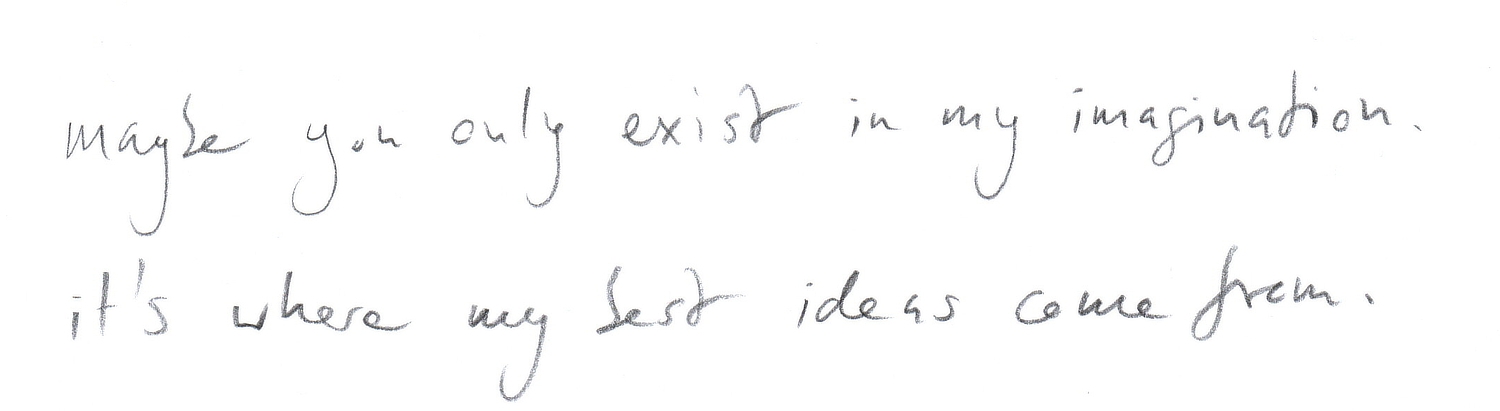 maybe you only exist in my imagination.
it's where my best ideas come from.